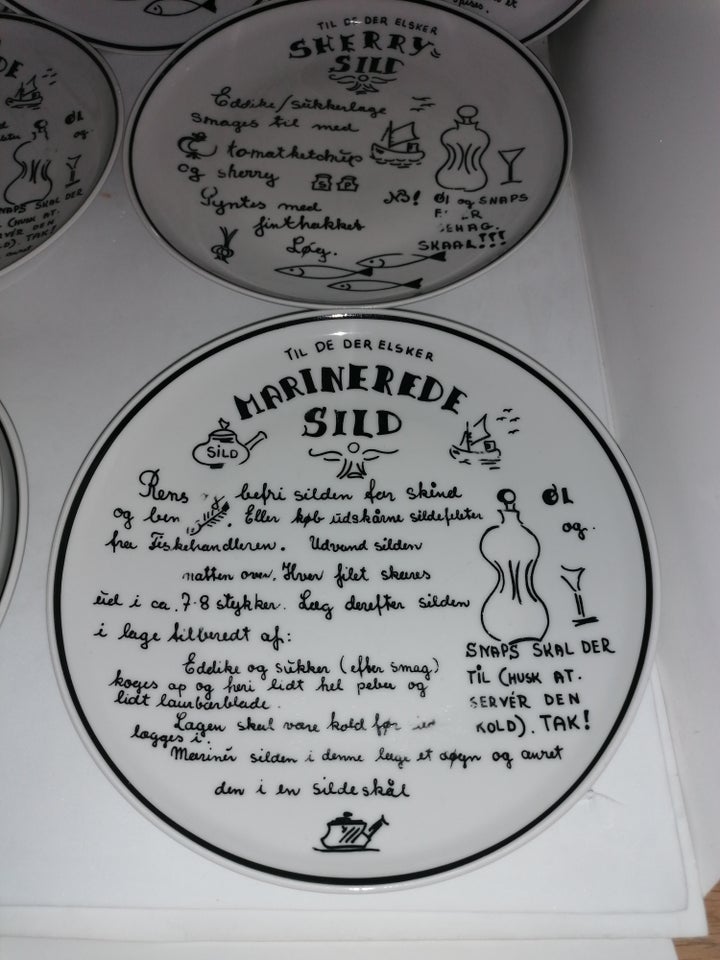 TIL DE DER ELSKER
SHERRY-
SILD
Eddike/sukkerlage
smages til med
tomatketchup
og sherry
S P
Pyntes med
finthakket
Løg.
NB! Øl og SNAPS
SKAAL!!!
ØL
og.
SNAPS SKAL DER
(HUSK AT.
TAK!
TIL DE DER ELSKER
MARINEREDE
SILD
SILD
Rens befri silden for skind
og ben . Eller køb udskårne sildefileter
fra Fiskehandleren. Udvand silden
natten over. Hver filet skæres
ud i ca. 7-8 stykker. Læg derefter silden
i lage tilberedt af:
Eddike og sukker (efter smag)
koges op og heri lidt hel peber og
lidt laurbærblade.
Lagen skal være kold før
lægges i.
Marinér silden i denne lage et døgn og anret
den i en sildeskål
ØL
og.
SNAPS SKAL DER
TIL (HUSK AT.
SERVÉR DEN
KOLD). TAK!